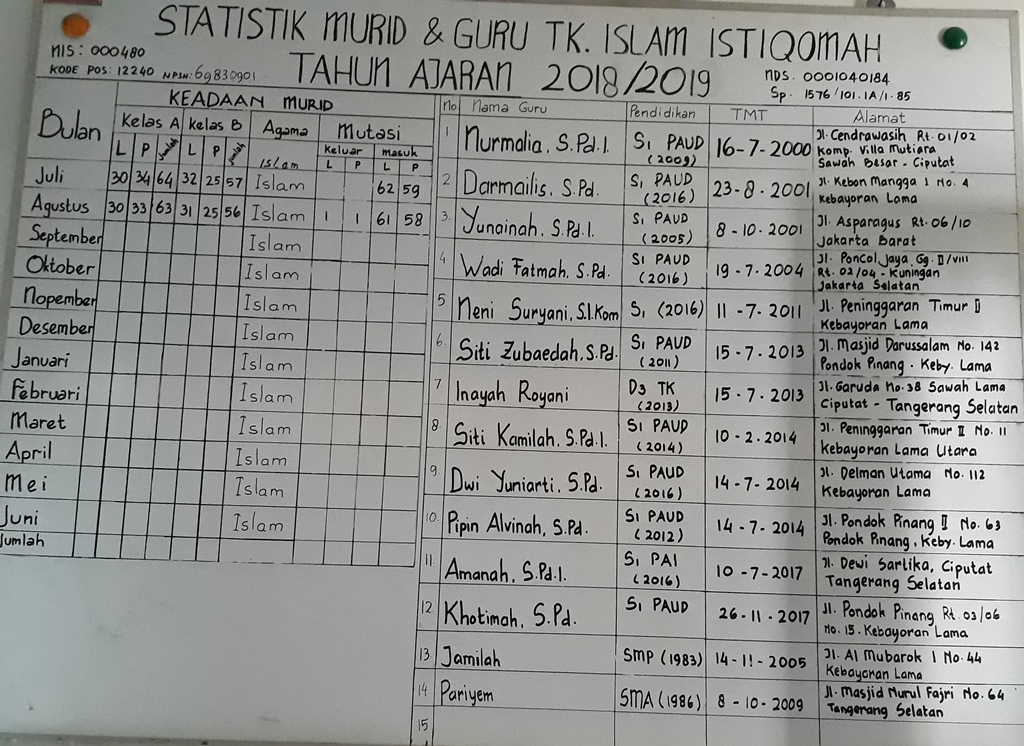 STATISTIK MURID & GURU TK. ISLAM ISTIQOMAH
TAHUN AJARAN 2018/2019
NIS: 000480
KODE POS: 12240 NPSN: 69830901
NDS. 0001040184
Sp. 1576/101.1A/1-85
Bulan
KEADAAN MURID
Kelas A Kelas B Agama Mutasi
Keluar masuk
L P Jumlah L P Jumlah Islam L P L P
Juli 30 34 64 32 25 57 Islam 62 59
Agustus 30 33 63 31 25 56 Islam 1 1 61 58
September Islam
Oktober Islam
Nopember Islam
Desember Islam
Januari Islam
Februari Islam
Maret Islam
April Islam
Mei Islam
Juni Islam
Jumlah
No Nama Guru Pendidikan TMT Alamat
1 Nurmalia, S.Pd.I. S1 PAUD (2009) 16-7-2000 Jl. Cendrawasih Rt. 01/02
Komp. Villa Mutiara
Sawah Besar - Ciputat
2 Darmailis, S.Pd. S1 PAUD (2016) 23-8-2001 Jl. Kebon Mangga 1 No. 4
Kebayoran Lama
3. Yunainah, S.Pd.I. S1 PAUD (2005) 8-10-2001 Jl. Asparagus Rt. 06/10
Jakarta Barat
4 Wadi Fatmah, S.Pd. S1 PAUD (2016) 19-7-2004 Jl. Poncol Jaya Gg. II/VIII
Rt. 02/04 - Kuningan
Jakarta Selatan
5 Neni Suryani, S.I.Kom S1 (2016) 11-7-2011 Jl. Peninggaran Timur II
Kebayoran Lama
6. Siti Zubaedah, S.Pd. S1 PAUD (2011) 15-7-2013 Jl. Masjid Darussalam No. 142
Pondok Pinang - Keby. Lama
7 Inayah Royani D3 TK (2013) 15-7-2013 Jl. Garuda No. 38 Sawah Lama
Ciputat - Tangerang Selatan
8. Siti Kamilah, S.Pd.I. S1 PAUD (2014) 10-2-2014 Jl. Peninggaran Timur II No. 11
Kebayoran Lama Utara
9. Dwi Yuniarti, S.Pd. S1 PAUD (2016) 14-7-2014 Jl. Delman Utama No. 112
Kebayoran Lama
10. Pipin Alvinah, S.Pd. S1 PAUD (2012) 14-7-2014 Jl. Pondok Pinang II No. 63
Pondok Pinang, Keby. Lama
11. Amanah, S.Pd.I. S1 PAI (2016) 10-7-2017 Jl. Dewi Sartika, Ciputat
Tangerang Selatan
12. Khotimah, S.Pd. S1 PAUD 26-11-2017 Jl. Pondok Pinang Rt. 03/06
No. 15. Kebayoran Lama
13. Jamilah SMP (1983) 14-11-2005 Jl. Al Mubarok 1 No. 44
Kebayoran Lama
14 Pariyem SMA (1986) 8-10-2009 Jl. Masjid Nurul Fajri No. 64
Tangerang Selatan
15